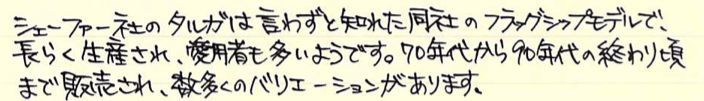 シェーファー社のタルガは言わずと知れた同社のフラッグシップモデルで、
長らく生産され、愛用者も多いようです。70年代から90年代の終わり頃
まで販売され、数多くのバリエーションがあります。